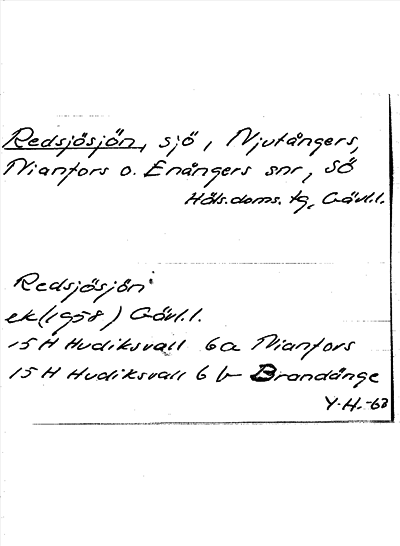 Redsjösjön, sjö, Njutångers,
Nianfors o. Enångers snr, SÖ
Häls.doms. tg, Gävl.l.
Redsjösjön:
ek(1958) Gävl.l.
15 H Hudiksvall 6a Nianfors
15 H Hudiksvall 6 b Brandänge
Y.H.-63